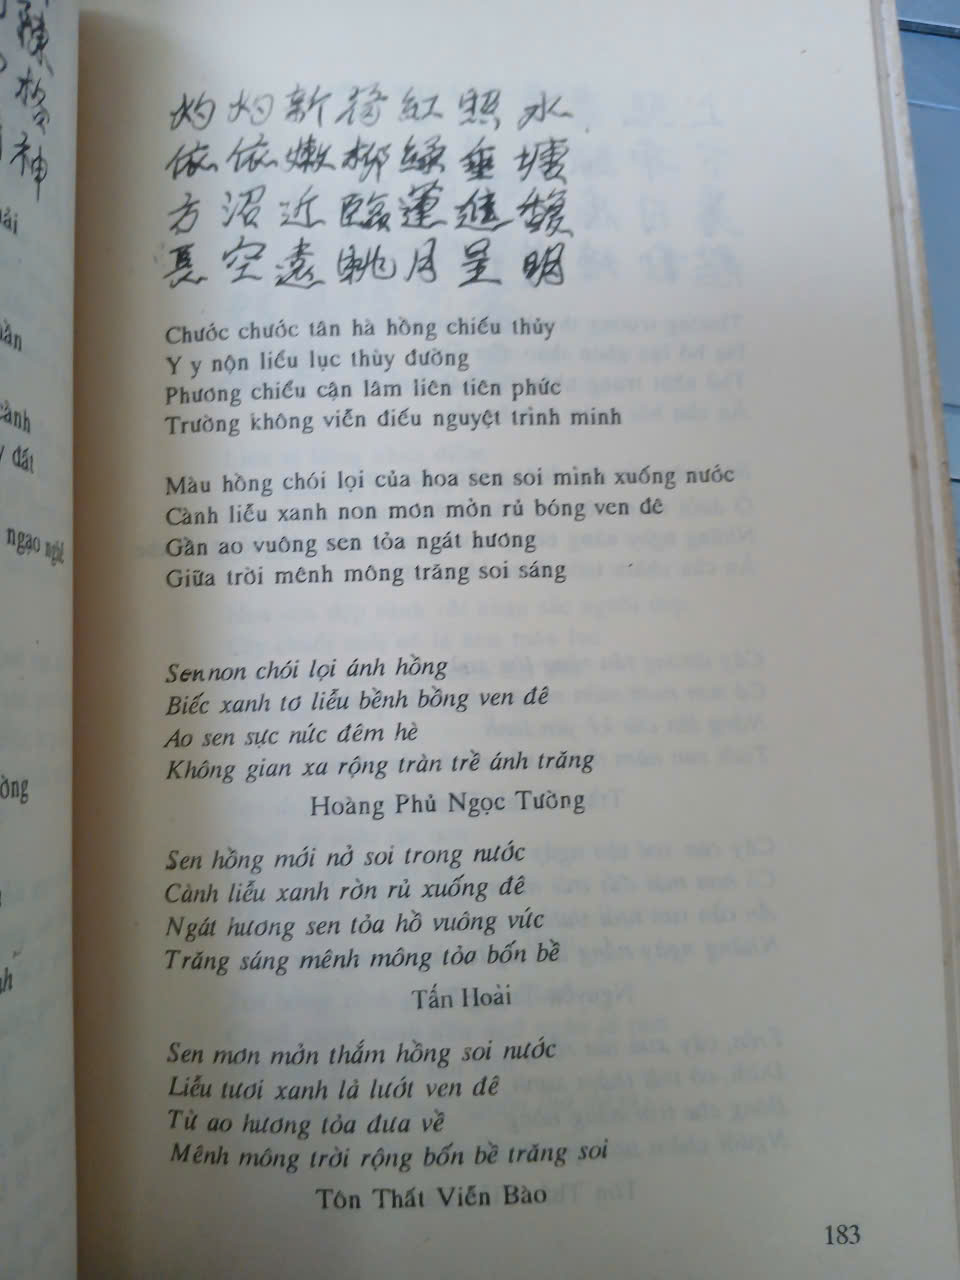 神
cành
đất
ngạo nghễ
灼灼新荷紅照水
依依嫩柳綠垂塘
方沼近臨蓮進馥
長空遠眺月呈明
Chước chước tân hà hồng chiếu thủy
Y y nộn liễu lục thùy đường
Phương chiểu cận lâm liên tiên phức
Trường không viễn điếu nguyệt trình minh
Màu hồng chói lọi của hoa sen soi mình xuống nước
Cành liễu xanh non mơn mởn rủ bóng ven đê
Gần ao vuông sen tỏa ngát hương
Giữa trời mênh mông trăng soi sáng
Sen non chói lọi ánh hồng
Biếc xanh tơ liễu bềnh bồng ven đê
Ao sen sực nức đêm hè
Không gian xa rộng tràn trề ánh trăng
Hoàng Phủ Ngọc Tường
Sen hồng mới nở soi trong nước
Cành liễu xanh rờn rủ xuống đê
Ngát hương sen tỏa hồ vuông vức
Trăng sáng mênh mông tỏa bốn bề
Tấn Hoài
Sen mơn mởn thắm hồng soi nước
Liễu tươi xanh lả lướt ven đê
Từ ao hương tỏa đưa về
Mênh mông trời rộng bốn bề trăng soi
Tôn Thất Viễn Bào
183